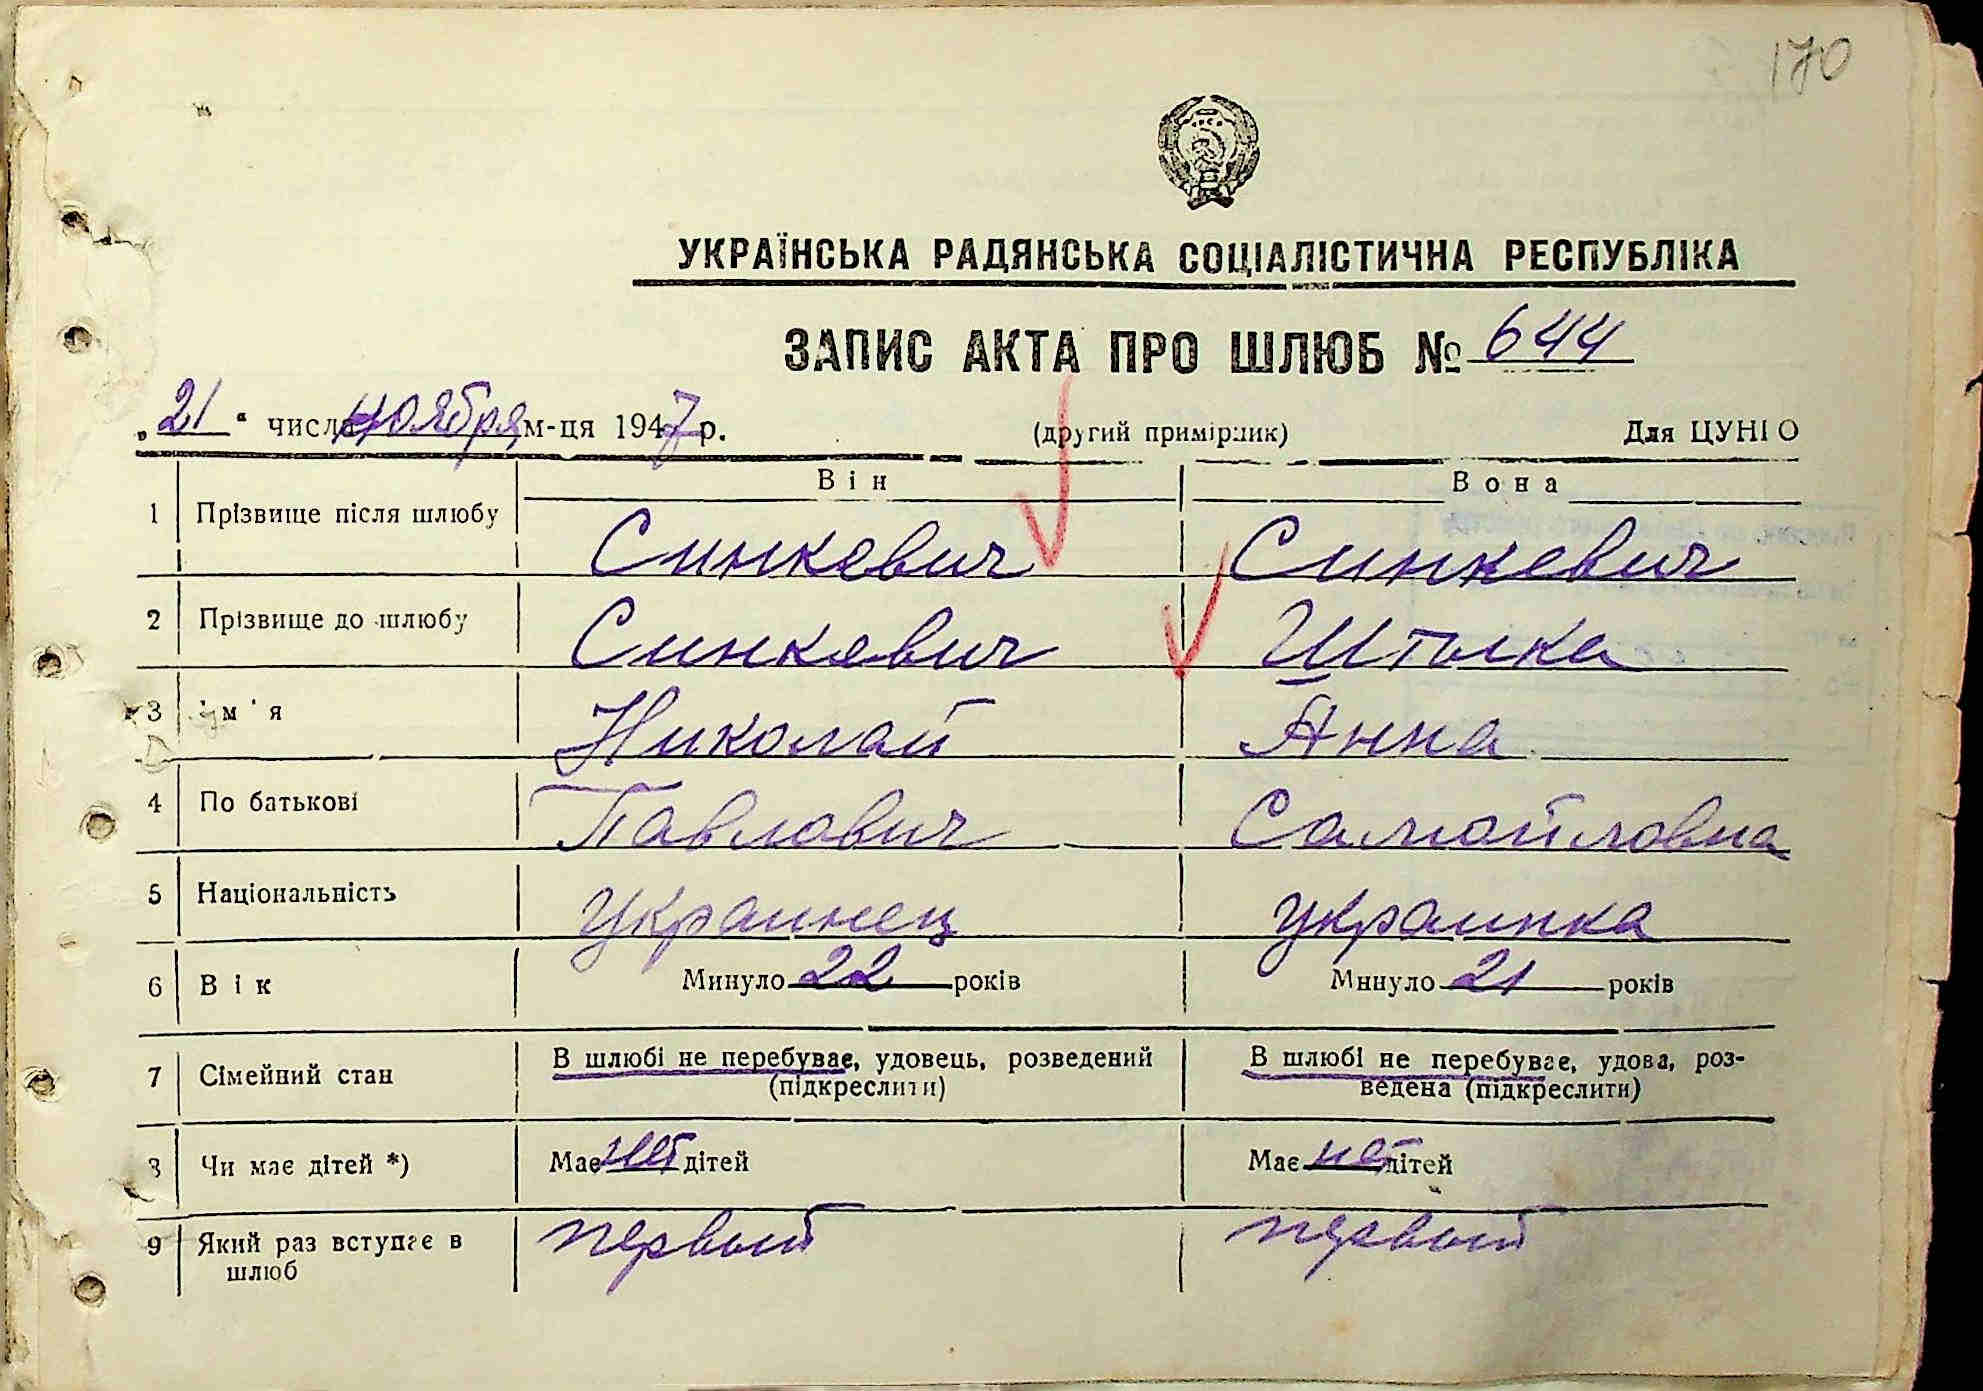 170
УКРАЇНСЬКА РАДЯНСЬКА СОЦІАЛІСТИЧНА РЕСПУБЛІКА
ЗАПИС АКТА ПРО ШЛЮБ № 644
„21“ числа ноября м-ця 1947 р. (другий примірник) Для ЦУНГО
Він Вона
1 Прізвище після шлюбу Синкевич Синкевич
2 Прізвище до шлюбу Синкевич
3 ім'я Николай Анна
4 По батькові Павлович Самойловна
5 Національність украинец украинка
6 Вік Минуло 22 років Минуло 21 років
7 Сімейний стан В шлюбі не перебуває, удовець, розведений В шлюбі не перебуває, удова, роз-
(підкреслити) ведена (підкреслити)
8 Чи має дітей *) Має нет дітей Має нет дітей
9 Який раз вступає в первый первый
шлюб